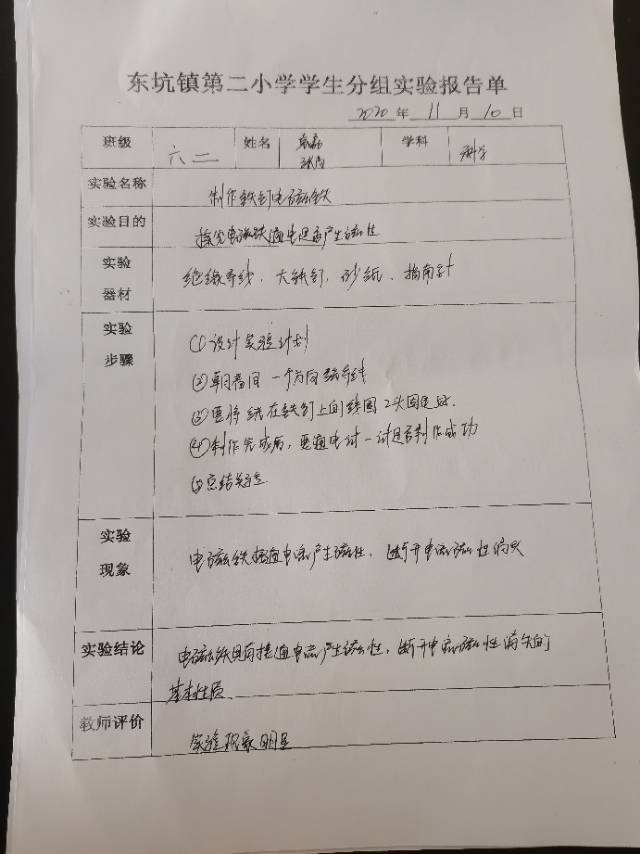 东坑镇第二小学学生分组实验报告单
2020 年 11 月 10 日
班级 六二 姓名 学科 科学
实验名称 制作铁钉电磁铁
实验目的 探究电磁铁通电是否产生磁性
实验器材 绝缘导线、大铁钉、砂纸、指南针
实验步骤
(1)设计实验计划
(2)朝着同一个方向绕导线
(3)要将绕在铁钉上的线圈2头固定好.
(4)制作完成后,要通电试一试是否制作成功
(5)总结实验
实验现象 电磁铁接通电流产生磁性,断开电流磁性消失
实验结论 电磁铁具有接通电流产生磁性,断开电流磁性消失的
基本性质
教师评价 实验现象明显